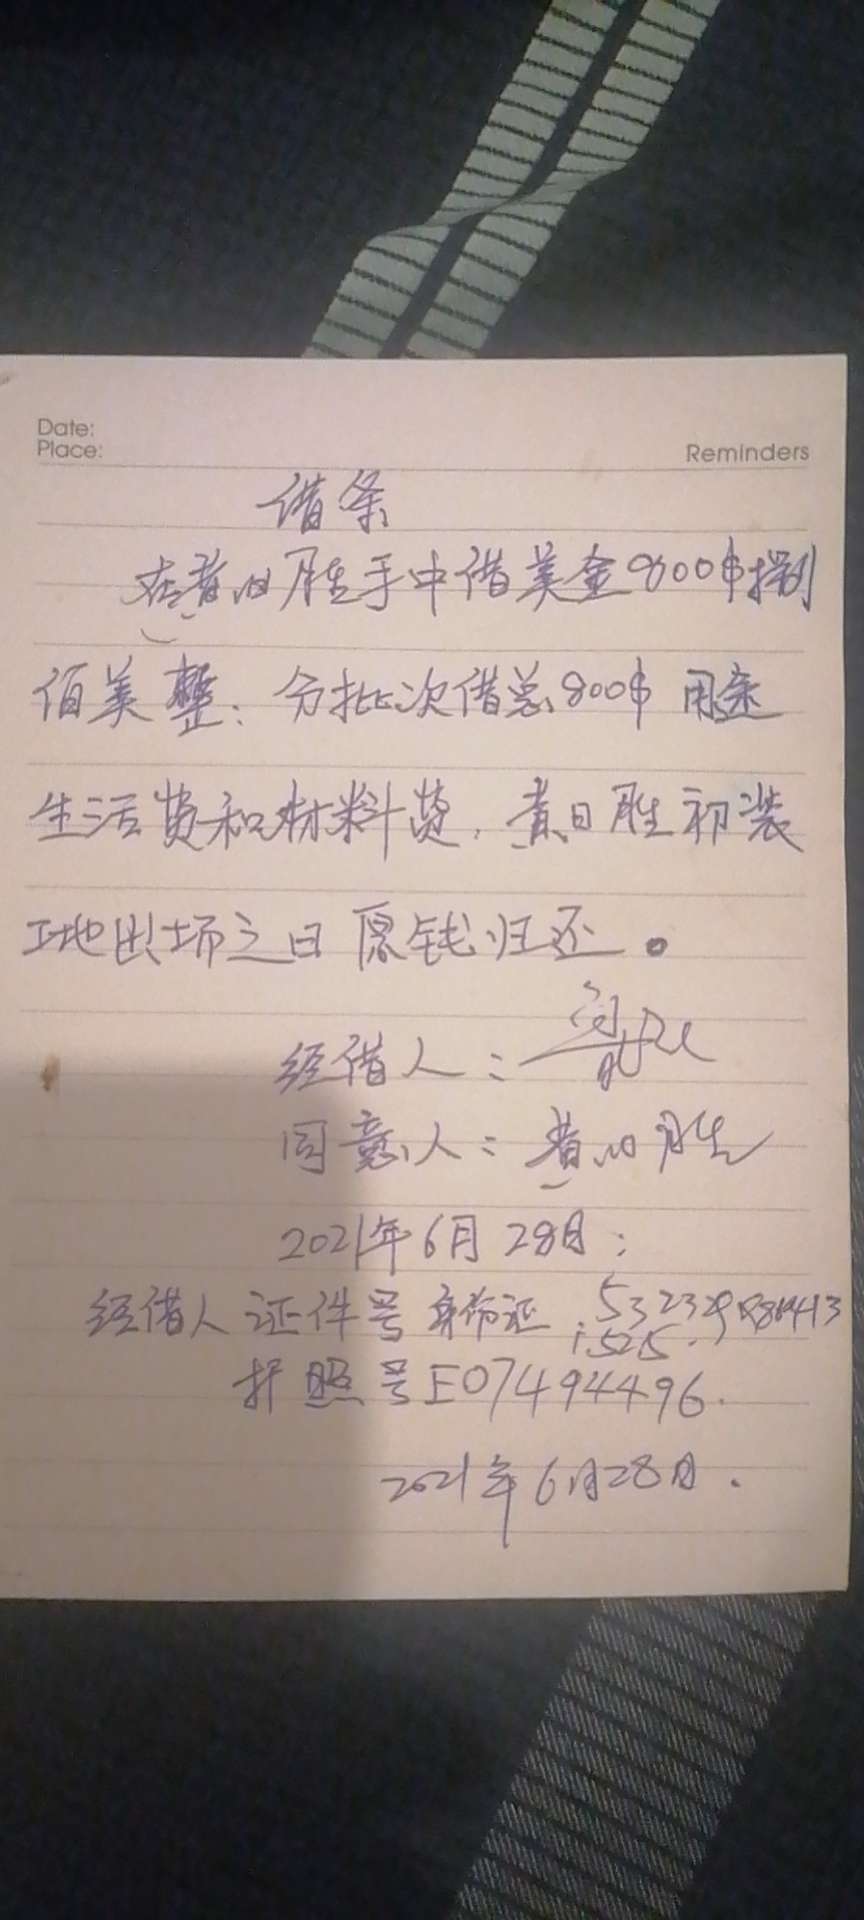 Date:
Place:
Reminders
借条
在黄日胜手中借美金800$捌
佰美整：分批次借总800$ 用途
生活费和材料费，黄日胜初装
工地出场之日 原钱归还。
经借人：
同意人：黄日胜
2021年6月28日：
经借人 证件号 身份证
护照号E07494496.
2021年6月28日.